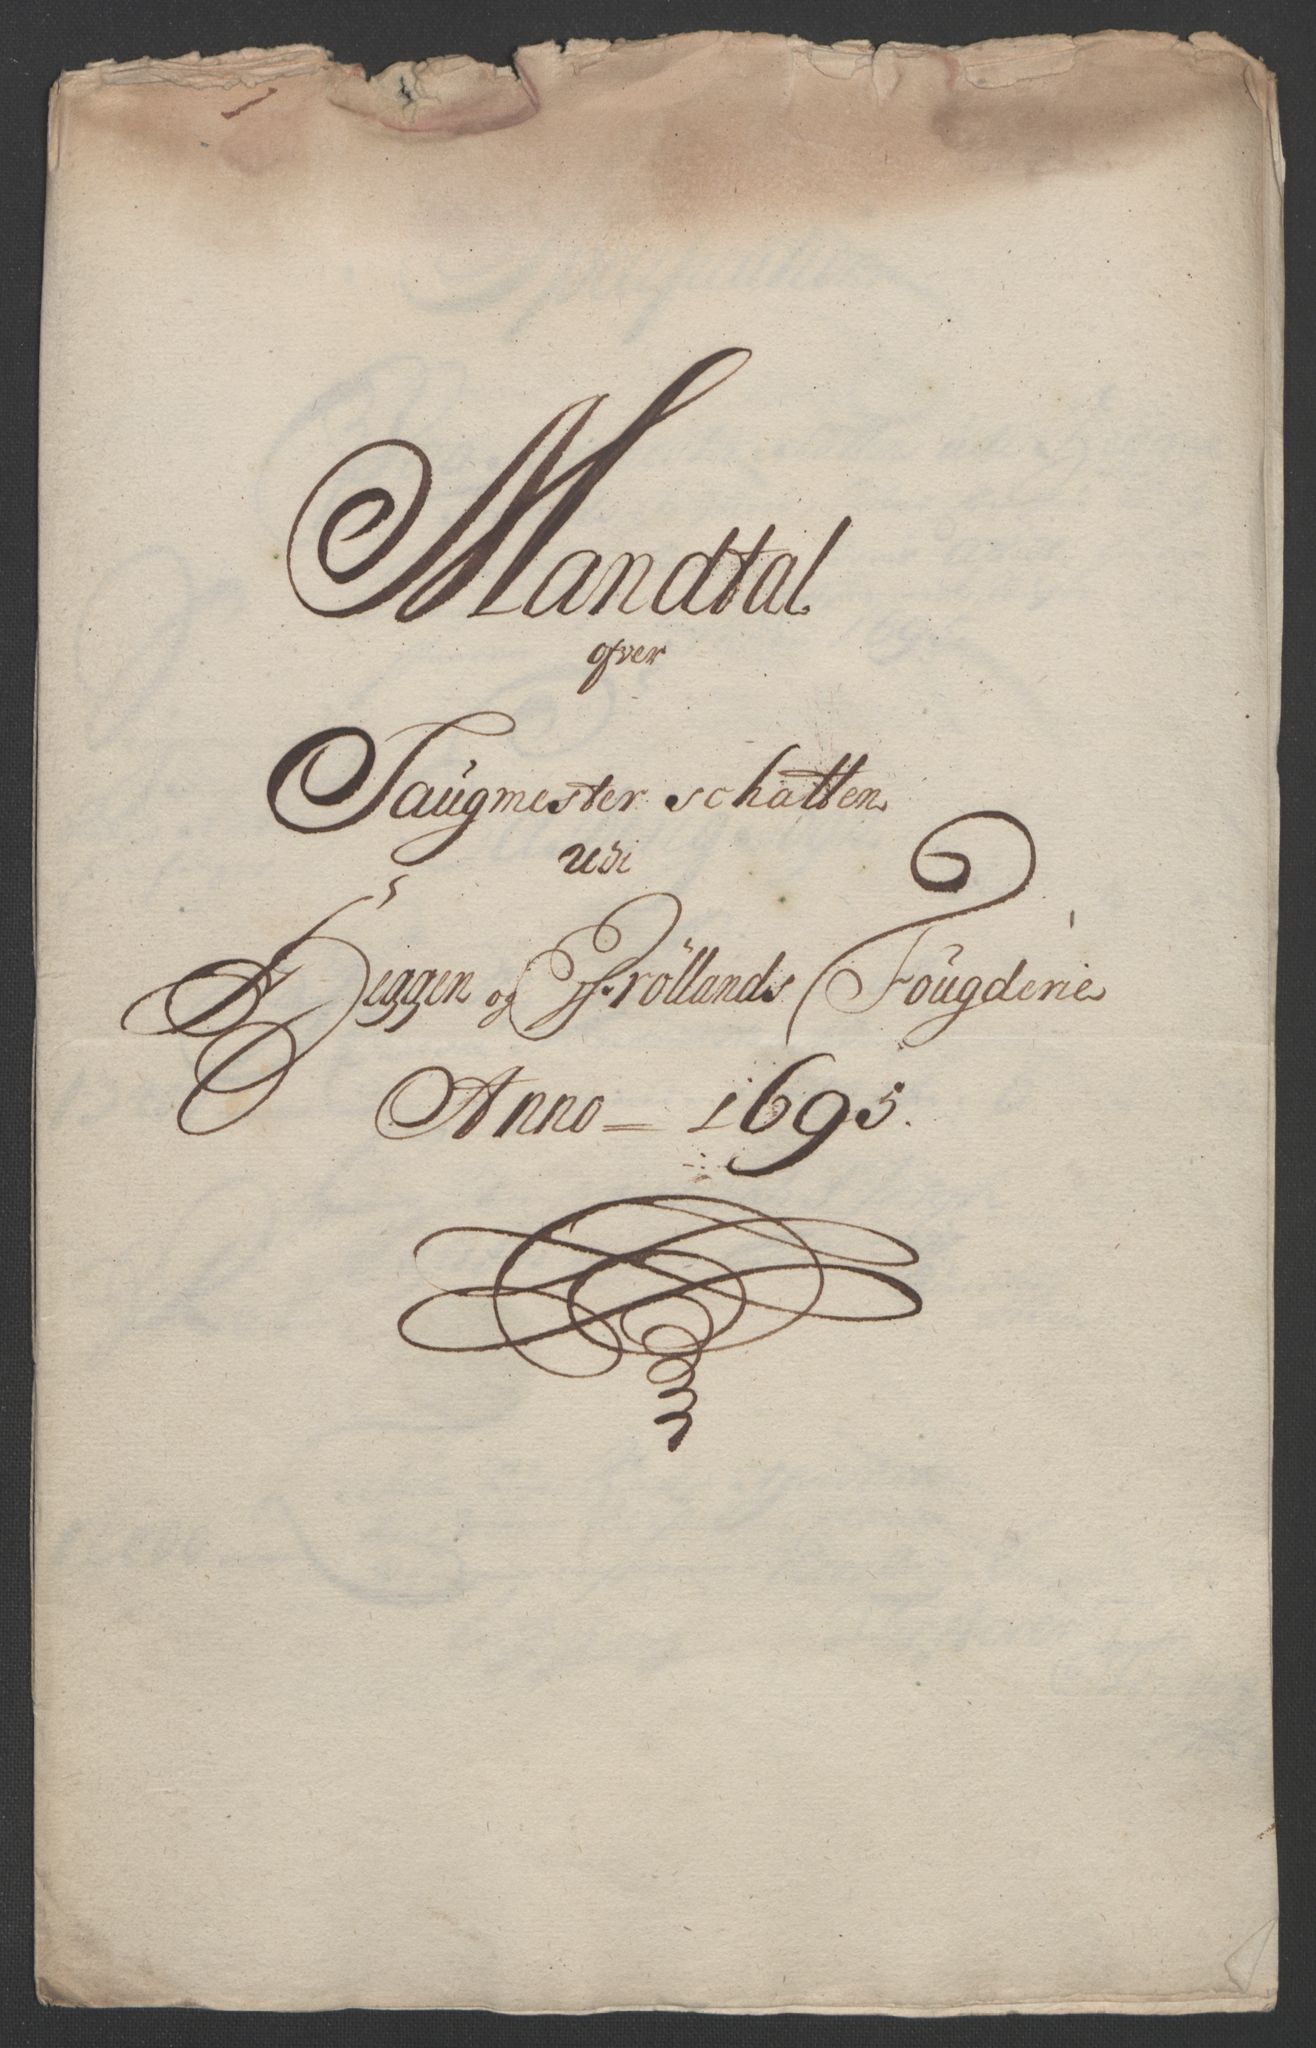 Mandtal
ofver
Saugmester schatten
udi
Heggen og Fröllands Fougderie
Anno = 1695.